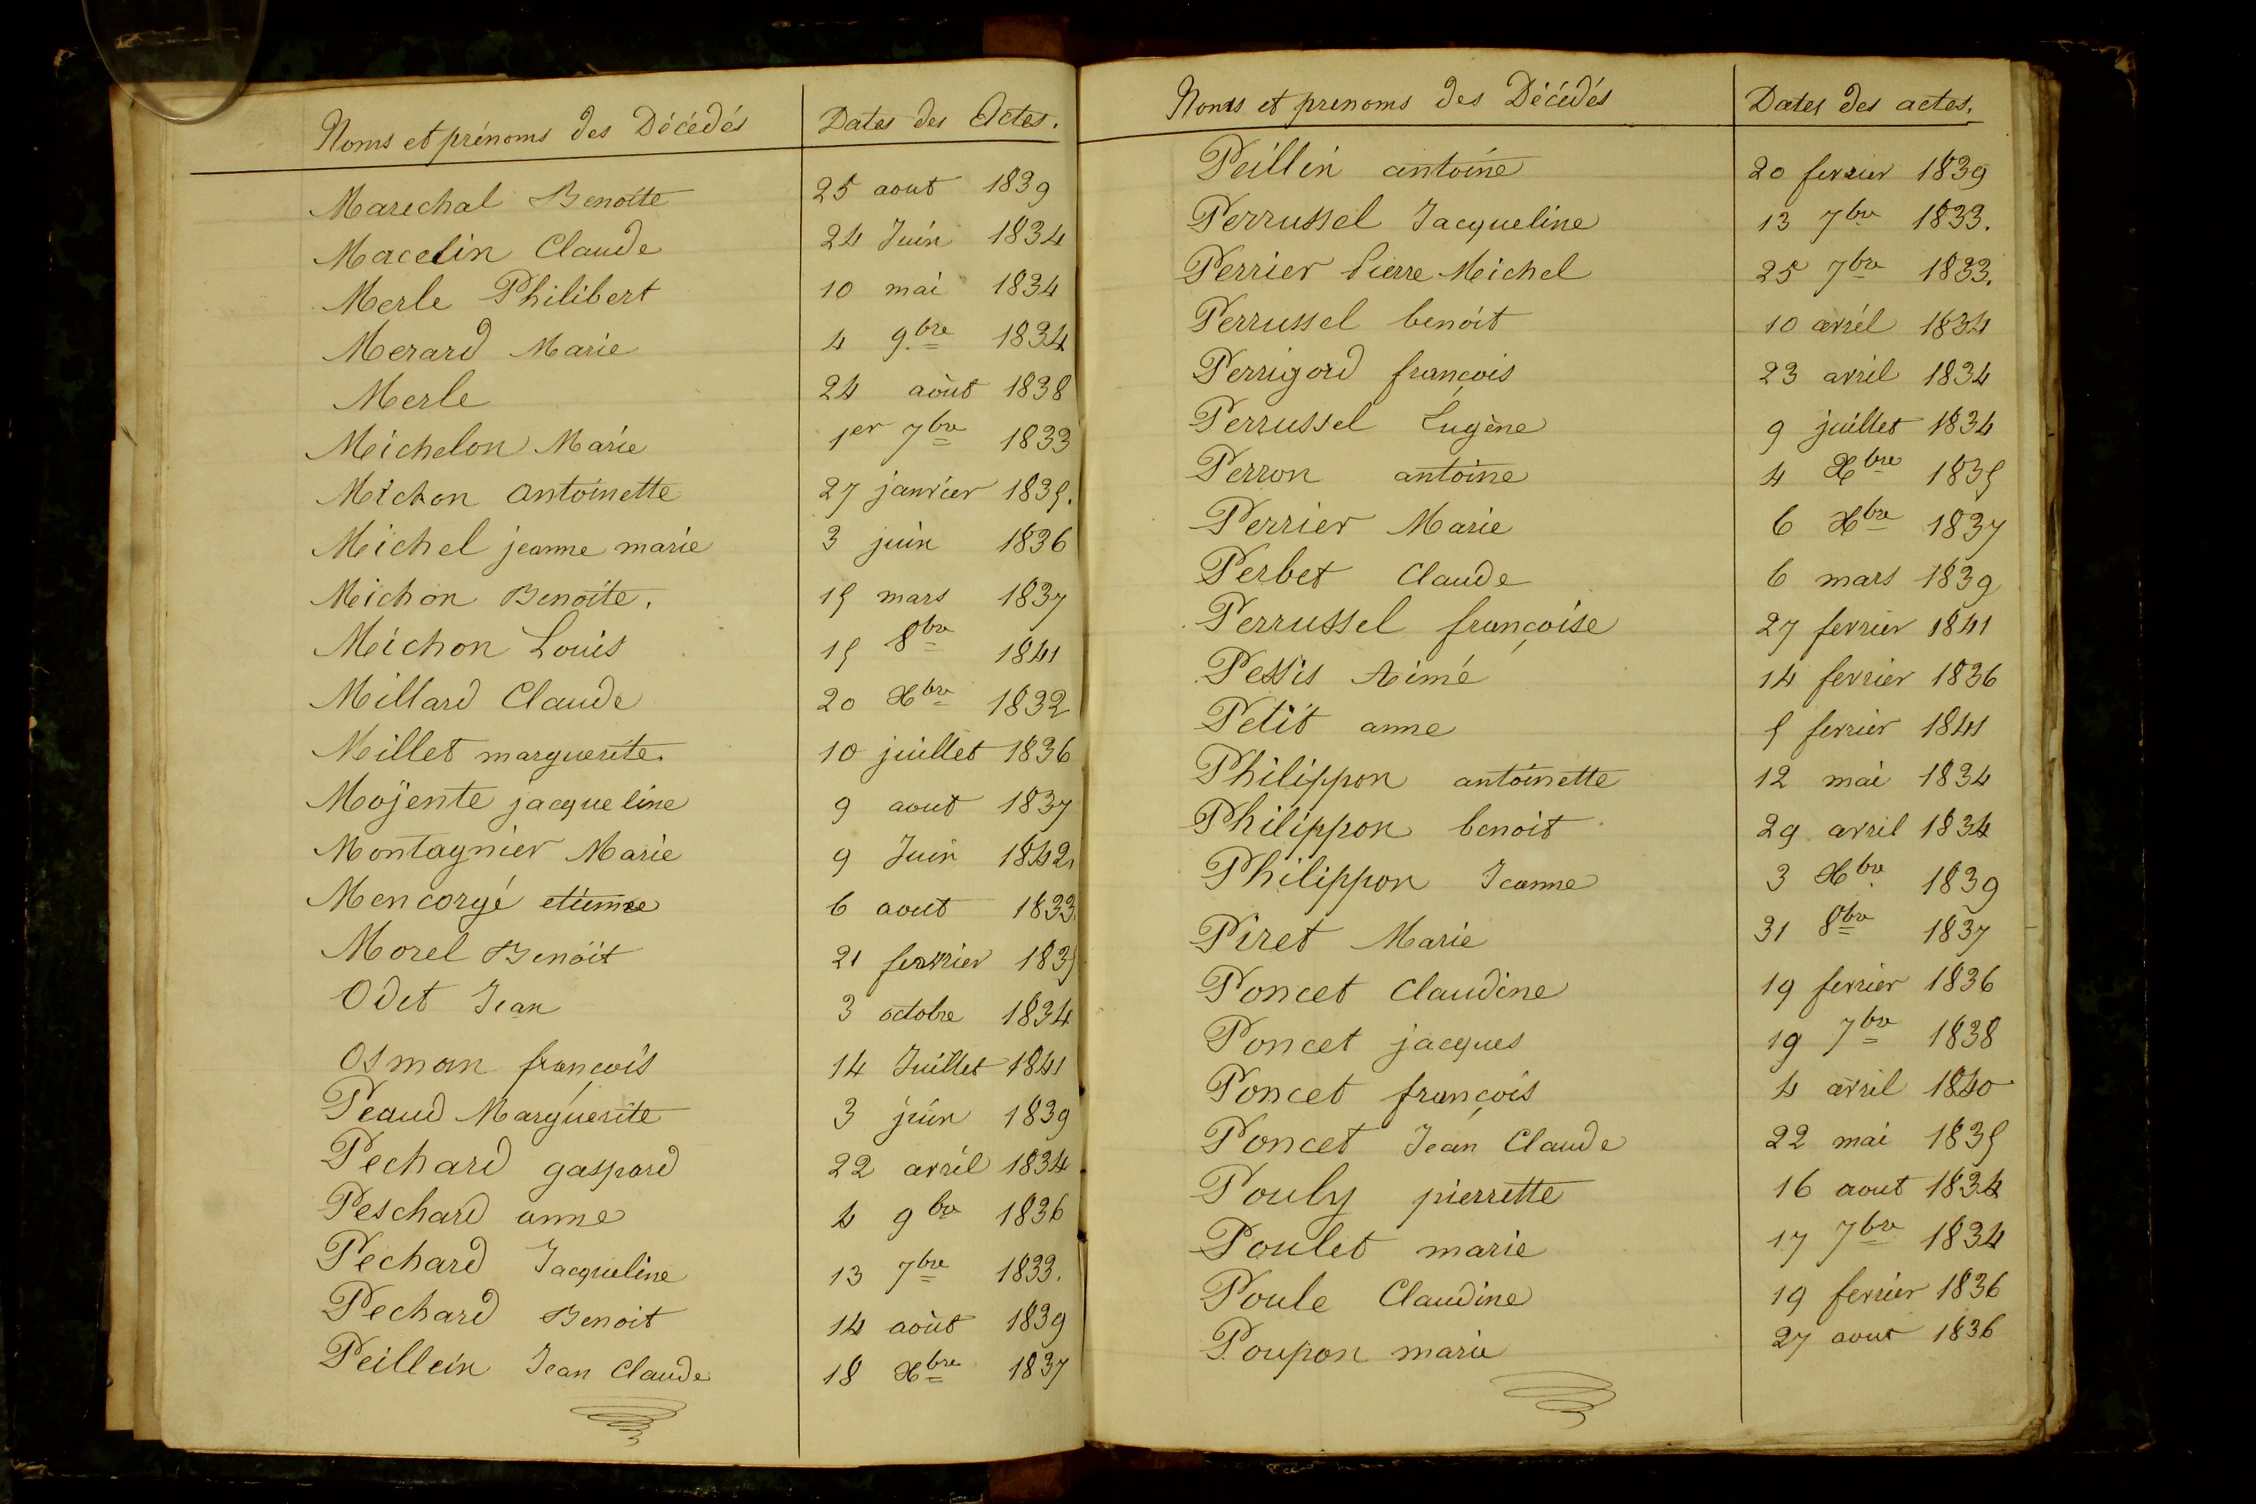 Noms et prénoms des Décédés Dates des Actes.
Marechal Benoite 25 aout 1839
Macelin Claude 24 Juin 1834
Merle Philibert 10 mai 1834
Merard Marie 4 9bre 1834
Merle 24 aòut 1838
Michelon Marie 1er 7bre 1833
Michon antoinette 27 janvier 1835.
Michel jeanne marie 3 juin 1836
Michon Benoite. 15 mars 1837
Michon Louis 15 8bre 1841
Millard Claude 20 Xbre 1832
Millet marguerite. 10 juillet 1836
Mojente jacqueline 9 aout 1837
Montagnier Marie 9 Juin 1842
Mencorgé etienne 6 aout 1833
Morel Benoit 21 fevrier 1835
Odet Jean 3 octobre 1834
Osman françois 14 Juillet 1841
Peaud Marguerite 3 juin 1839
Pechard gaspard 22 avril 1834
Peschard anne 4 9bre 1836
Pechard Jacqueline 13 7bre 1833.
Pechard Benoit 14 aòut 1839
Peillein Jean Claude 18 Xbre 1837
Noms et prenoms des Décédés Dates des actes.
Peillin antoine 20 fevrier 1839
Perrussel Jacqueline 13 7bre 1833.
Perrier Pierre Michel 25 7bre 1833.
Perrussel benoit 10 avril 1834
Perrigord françois 23 avril 1834
Perrussel Eugène 9 juillet 1834
Perron antoine 4 Xbre 1835
Perrier Marie 6 Xbre 1837
Perbet Claude 6 mars 1839
Perrussel françoise 27 fevrier 1841
Pessis Aimé 14 fevrier 1836
Petit anne 5 fevrier 1841
Philippon antoinette 12 mai 1834
Philippon benoit 29 avril 1834
Philippon Jeanne 3 Xbre 1839
Piret Marie 31 8bre 1837
Poncet Claudine 19 fevrier 1836
Poncet jacques 19 7bre 1838
Poncet françois 4 avril 1840
Poncet Jean Claude 22 mai 1835
Pouly pierrette 16 aout 1834
Poulet marie 17 7bre 1834
Poule Claudine 19 fevrier 1836
Poupon marie 27 aout 1836